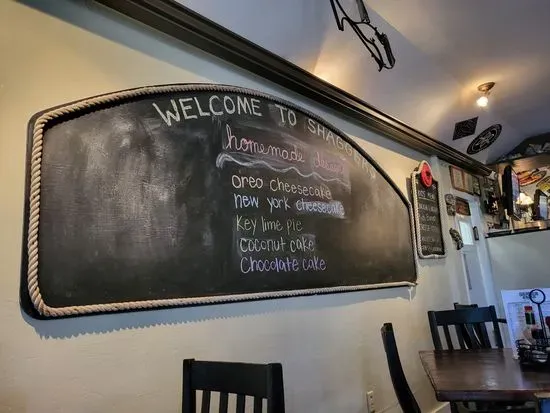 WELCOME TO
homemade dessert
oreo cheesecake
new york cheesecake
Key lime pie
coconut cake
Chocolate cake